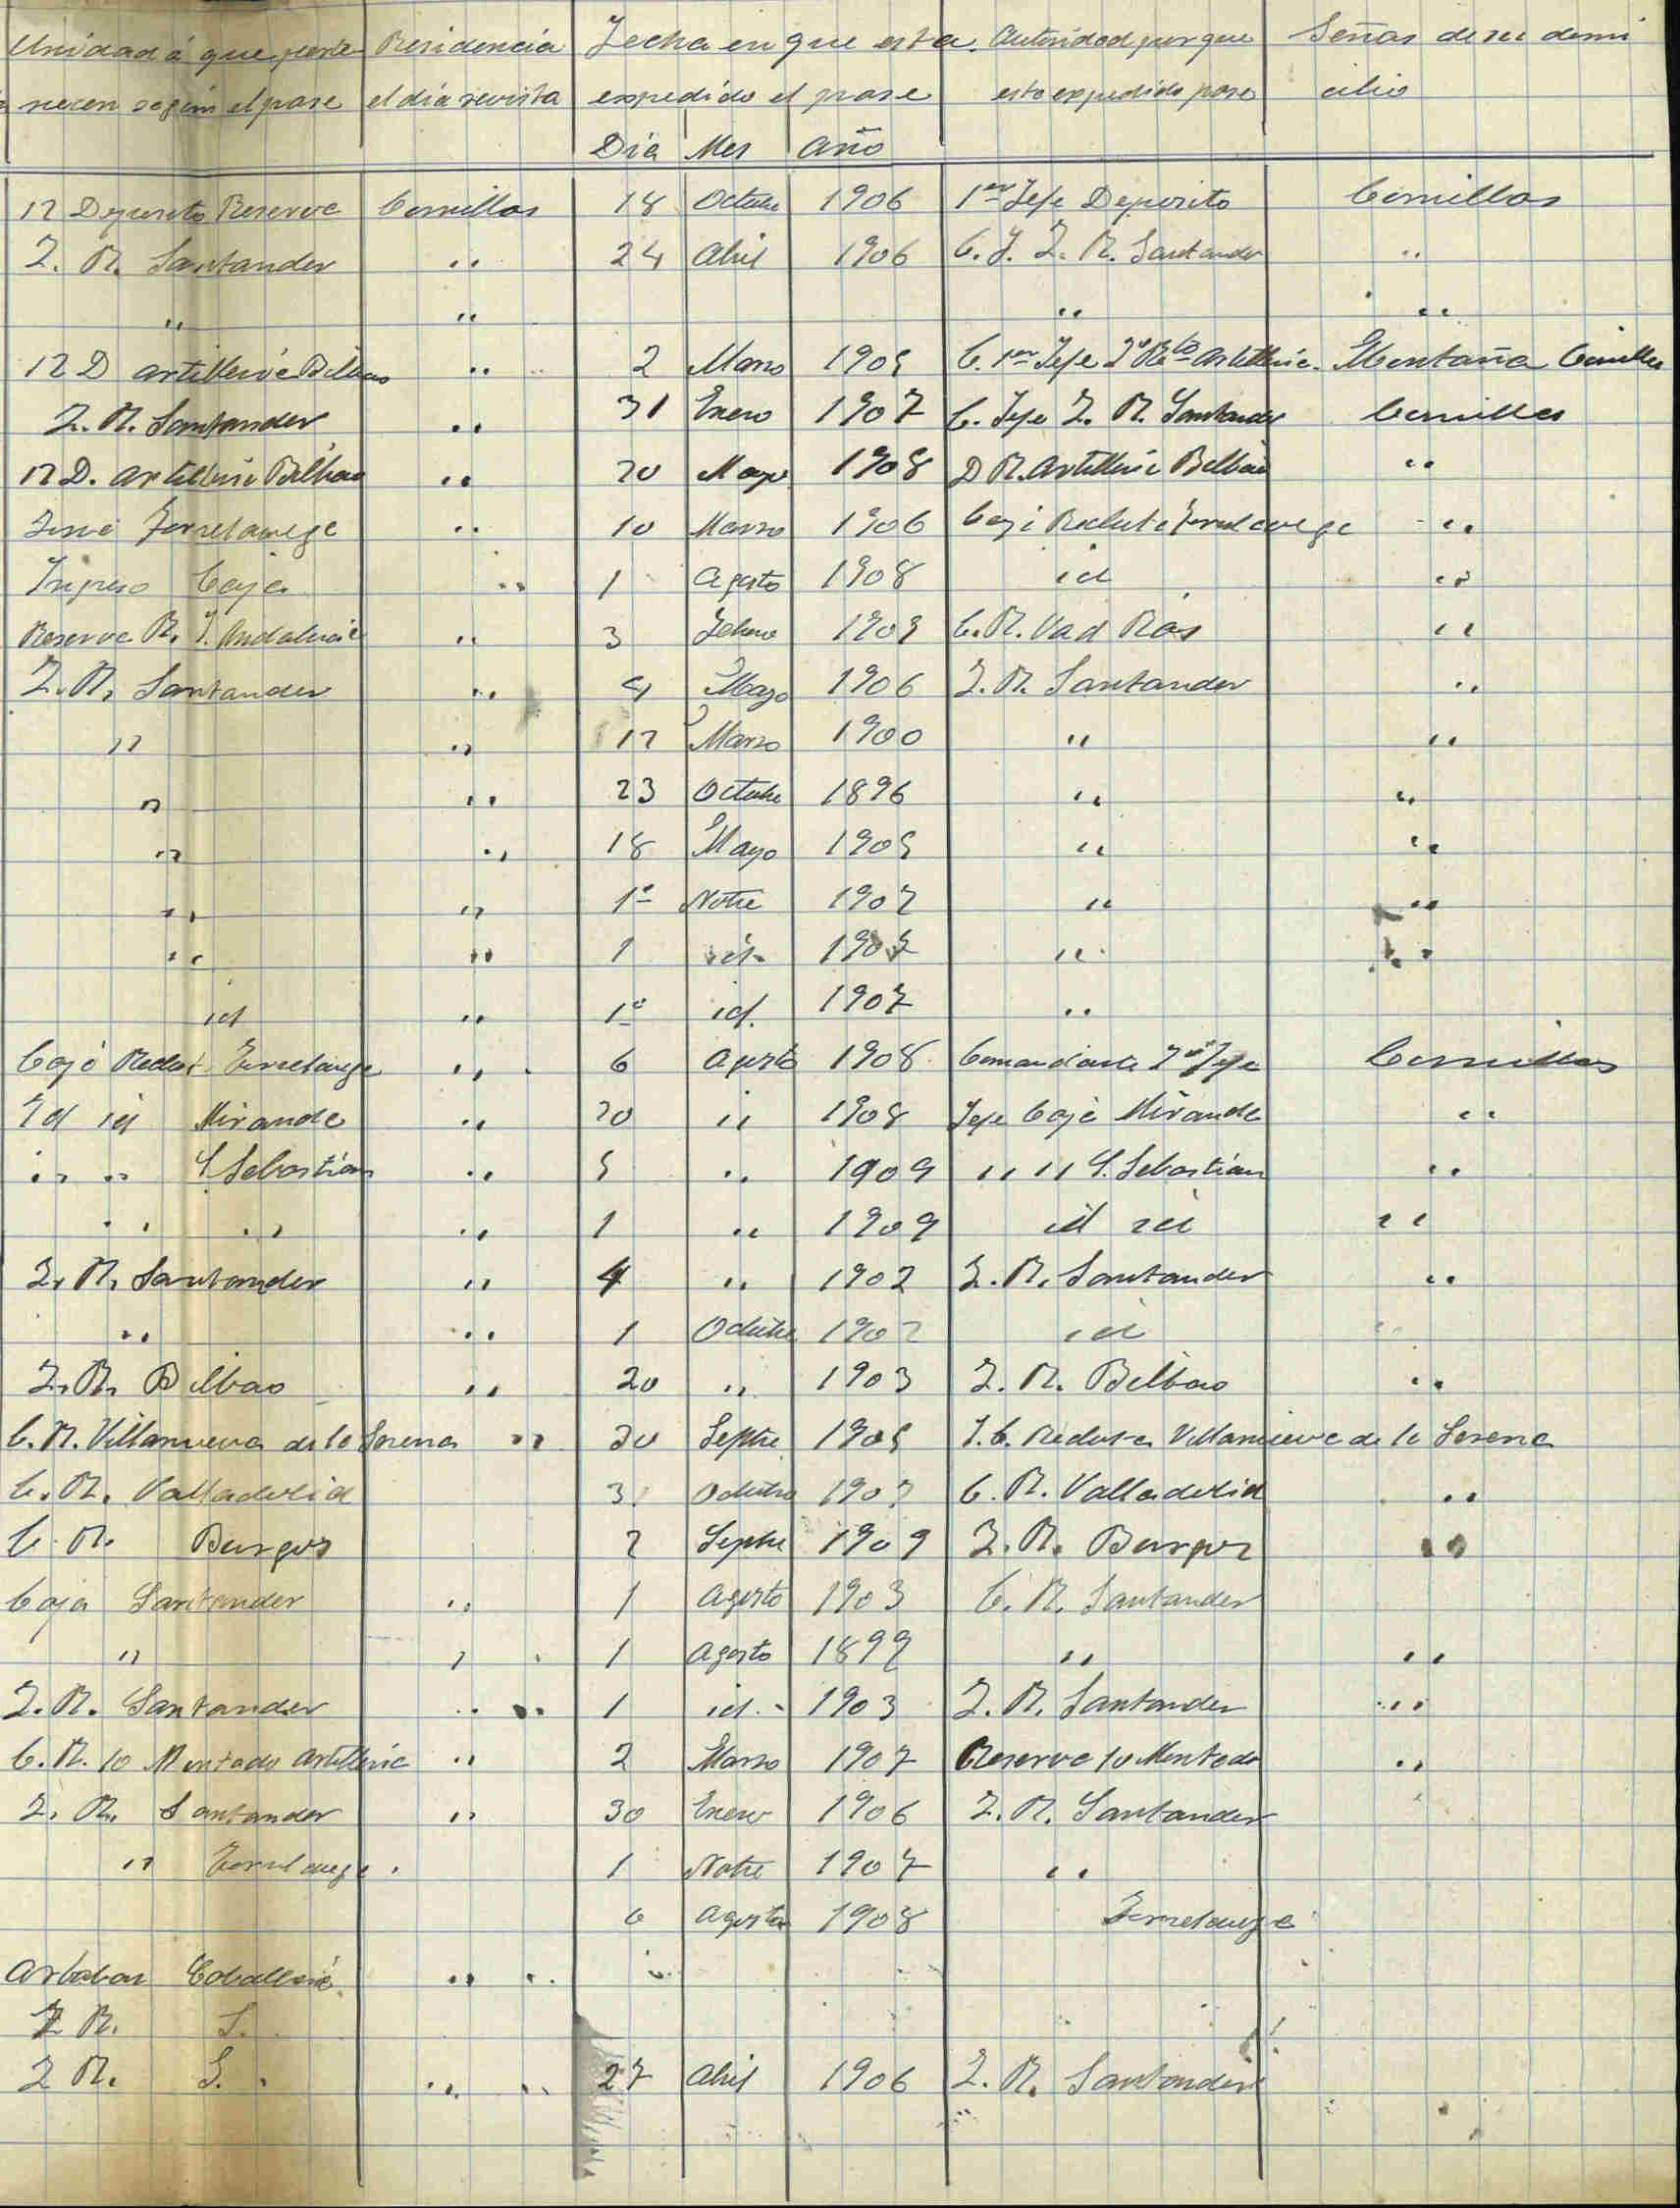 Unidad á que perte Residencia Fecha en que esta Autoridad por que Señas de su domi
necen según el pase el día revista expedido el pase esta expedido pase cilio
Día Mes Año
12 Deposito Reserva Comillas 18 Octubre 1906 1er Jefe Deposito Comillas
Z. R. Santander " 24 Abril 1906 C. J. Z. R. Santander "
" " " "
12 D Artilleria Bilbao " 2 Marzo 1905 C. 1er Jefe Artilleria Montaña Comillas
Z. R. Santander " 31 Enero 1907 C. Jefe Z. R. Santander Comillas
12 D. Artilleria Bilbao " 20 Mayo 1908 D R. Artilleria Bilbao "
Torrelavega " 10 Marzo 1906 Caja Recluta Torrelavega "
Ingreso Caja " 1 Agosto 1908 id "
Reserva R. Y. Andalucia " 3 Febrero 1909 C. R. Vad Rás "
Z. R. Santander " 4 Mayo 1906 Z. R. Santander "
" " 12 Marzo 1900 " "
" " 23 Octubre 1896 " "
" " 18 Mayo 1905 " "
" " 1º Nbre 1907 " "
" " 1 id. 1907 " "
id " 1º id. 1907 "
Caja Reclut Torrelavega " 6 Agosto 1908 Comandante 2º Jefe Comillas
Id id Miranda " 20 " 1908 Jefe Caja Miranda "
" " S. Sebastian " 5 " 1909 " " S. Sebastian "
" " " 1 " 1909 id id "
Z. R. Santander " 4 " 1902 Z. R. Santander "
" " 1 Octubre 1902 id "
Z. R. Bilbao " 20 " 1903 Z. R. Bilbao "
C. R. Villanueva de la Serena " 30 Septre 1905 J. C. Recluta Villanueva de la Serena
C. R. Valladolid 3 Octubre 1907 C. R. Valladolid "
C. R. Burgos 2 Septre 1909 Z. R. Burgos "
Caja Santander " 1 Agosto 1903 C. R. Santander
" " 1 Agosto 1899 " "
Z. R. Santander " 1 id. 1903 Z. R. Santander "
C. R. 10 Montado Artilleria " 2 Marzo 1907 Reserva 10 Montado "
Z. R. Santander " 30 Enero 1906 Z. R. Santander
" Torrelavega 1 Nbre 1907 "
6 Agosto 1908 Torrelavega
Arlaban Caballeria "
Z R. S.
Z R. S. " 27 Abril 1906 Z. R. Santander